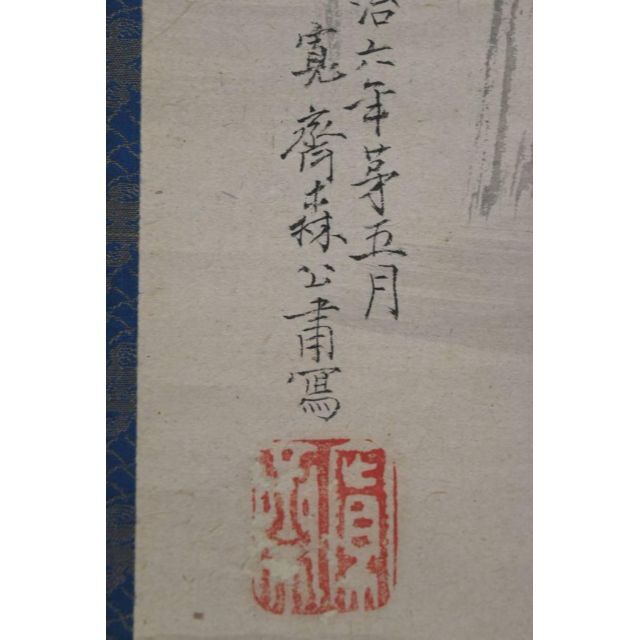 治六年第五月
寛齋森公肅寫